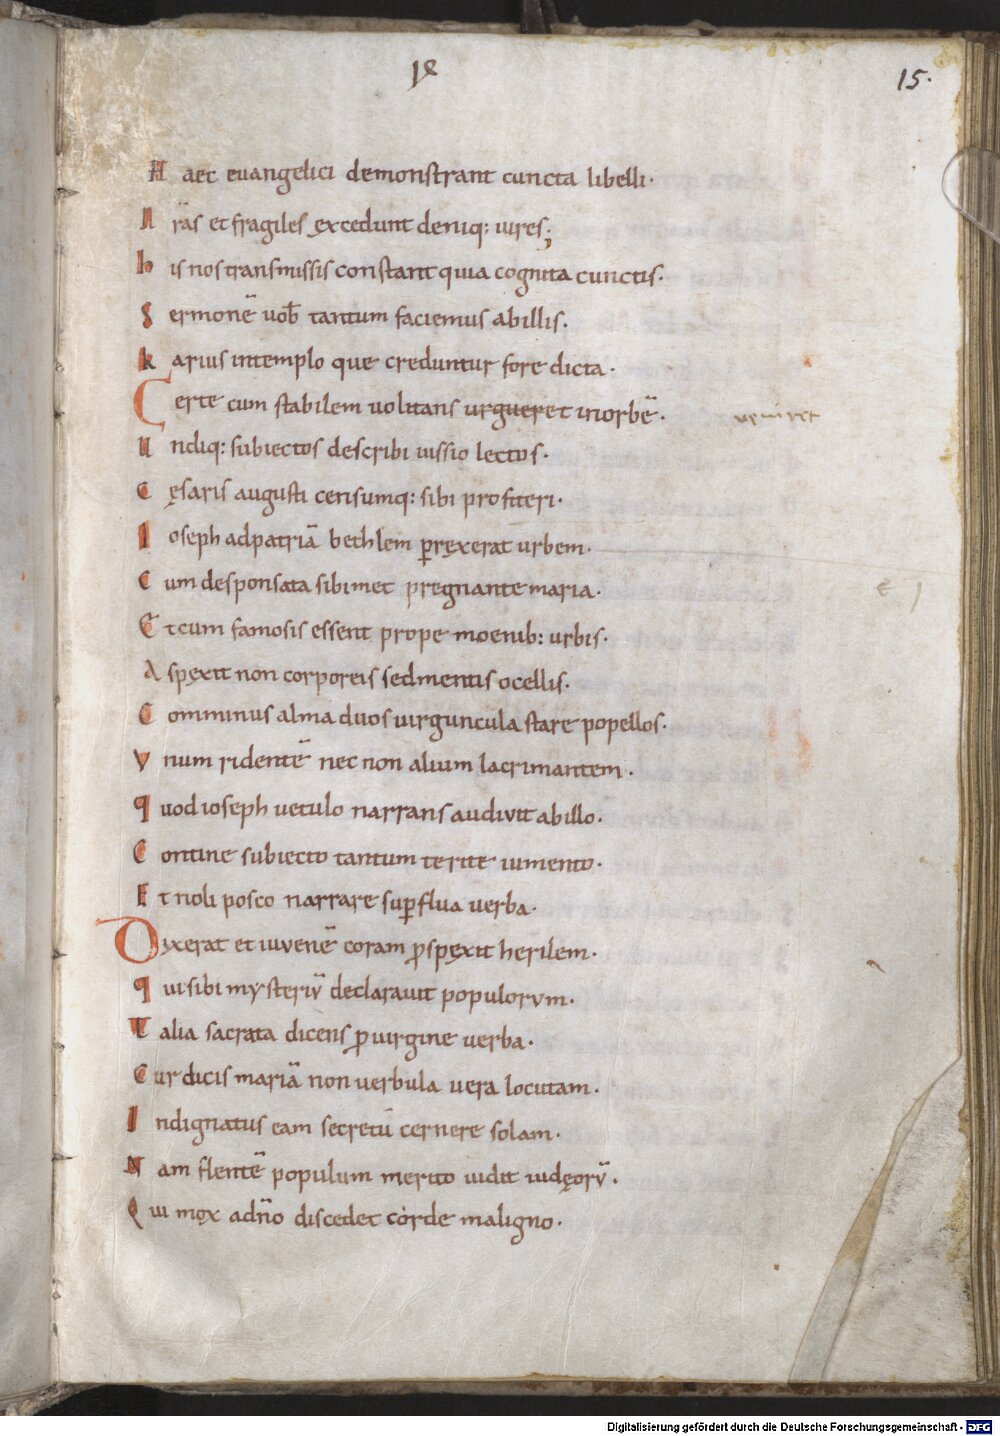 18
15.
Haec euangelici demonstrant cuncta libelli·
Nr̄as et fragiles excedunt deniq: uires;
his nos transmissis constant quia cognita cunctis·
Sermonē uob̄ tantum faciemus ab illis.
karius in templo que creduntur fore dicta·
Certe cum stabilem uolitans urgueret in orbē· ueniret
Undiq: subiectos describi iussio lectos·
Cęsaris augusti censumq: sibi profiteri·
Ioseph ad patriā bethlem p̱ręxerat urbem·
Cum desponsata sibimet pregnante maria·
Et cum famosis essent prope moenib: urbis·
Aspexit non corporeis sed mentis ocellis·
Comminus alma duos uirguncula stare popellos·
Vnum ridentē nec non alium lacrimantem·
quod ioseph uetulo narrans audivit ab illo·
Contine subiecto tantum te rite iumento·
Et noli posco narrare sup̱flua uerba·
Dixerat et iuvenē coram p̱spexit herilem·
qui sibi mysteriū declarauit populorvm·
Talia sacrata dicens p̱ uirgine uerba·
Cur dicis mariā non uerbula uera locutam·
Indignatus eam secretū cernere solam·
Nam flentē populum merito uidit iudęorū·
Qui mox a dn̄o discedet corde maligno·
Digitalisierung gefördert durch die Deutsche Forschungsgemeinschaft - DFG